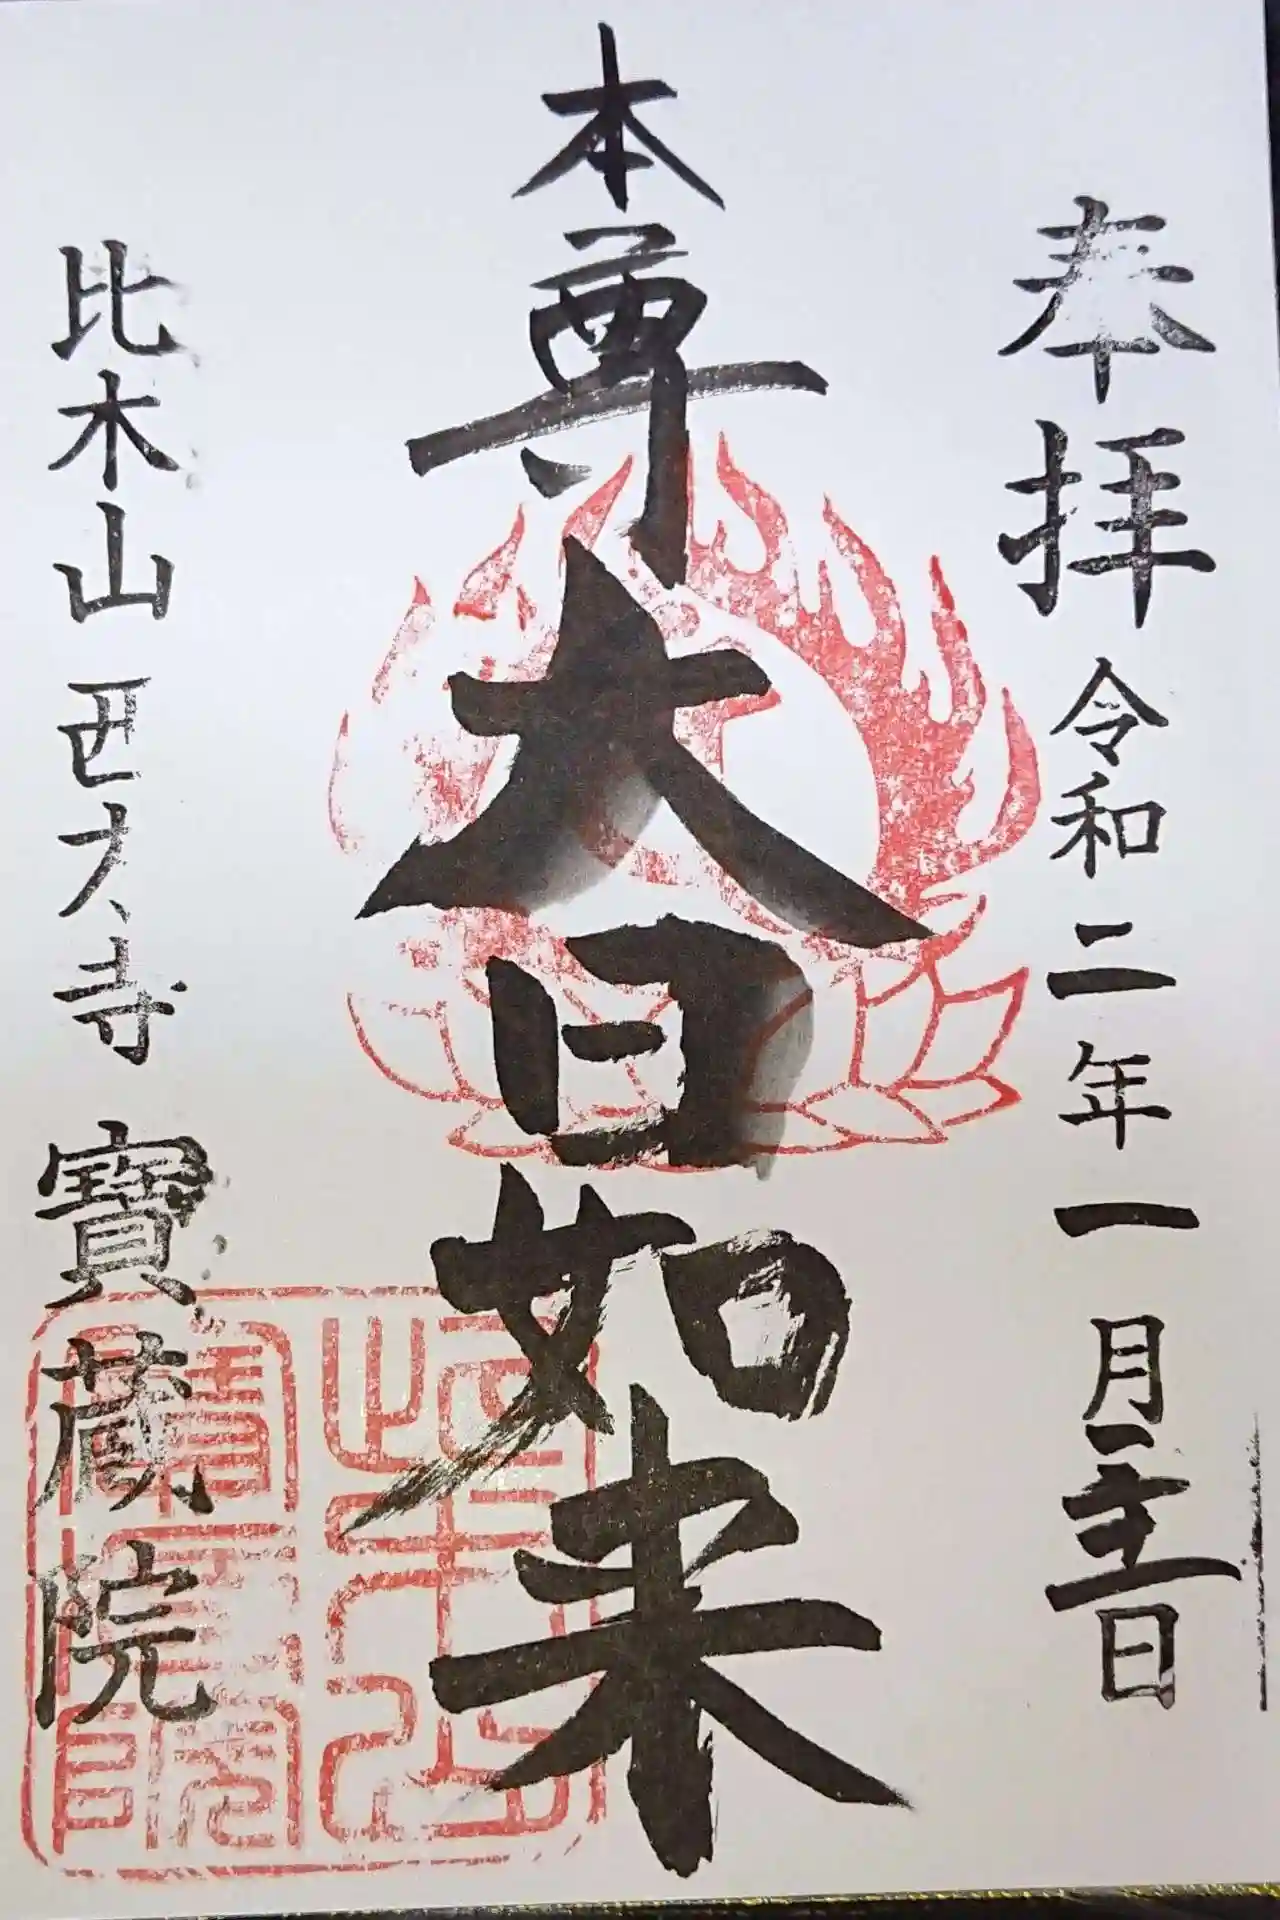 奉拝 令和二年一月日
本尊大日如来
比木山 寺 寶蔵院